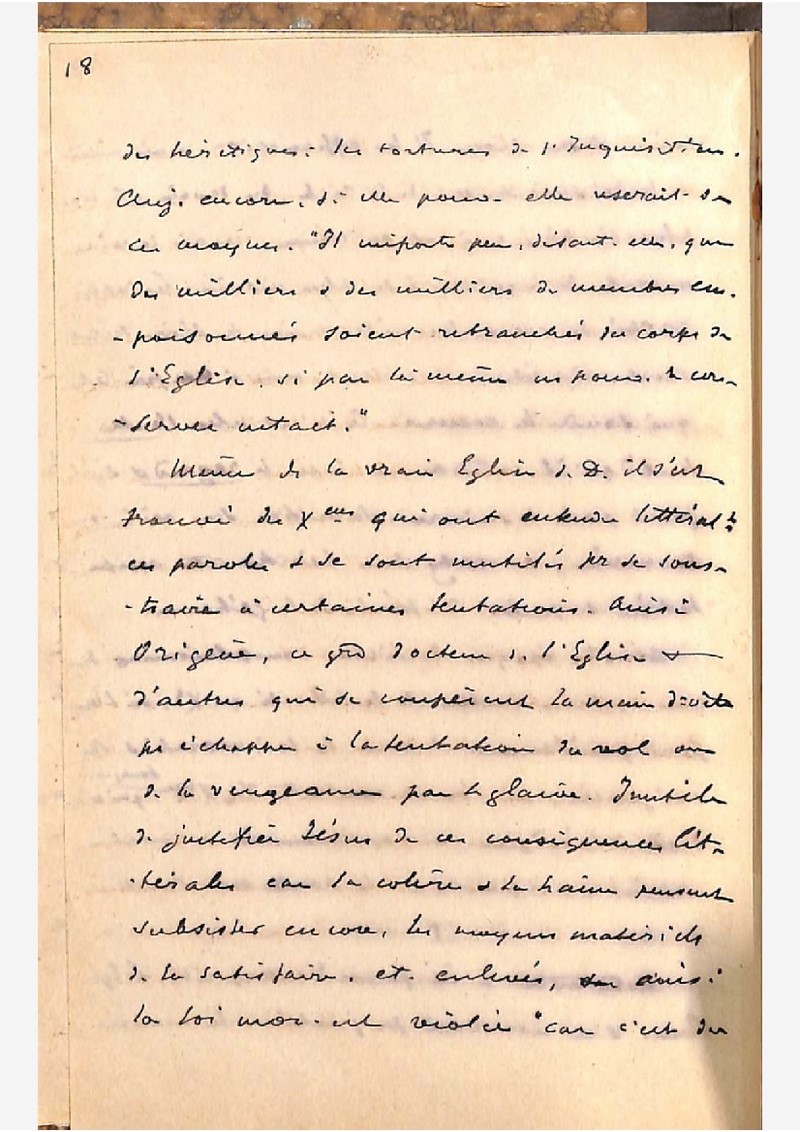 18
des hérétiques : les tortures de l'Inquisition.
Auj. encore, si elle pouv. elle userait de
ces moyens. "Il importe peu, disait-elle, que
des milliers & des milliers de membres em-
-poisonnés soient retranchés du corps de
l'Eglise, si par là même on pouv. le con-
-server intact."
Même de la vraie Eglise d. D. il s'est
trouvé des Xens qui ont entendu littéralt
ces paroles & se sont mutilés pr se sous-
-traire à certaines tentations. Ainsi
Origène, ce grd docteur d. l'Eglise &
d'autres qui se coupèrent la main droite
pr échapper à la tentation du vol ou
de la vengeance par le glaive. Inutile
de justifier Jésus de ces conséquences lit-
-térales car la colère & la haine peuvent
subsister encore, les moyens matériels
de la satisfaire. et. enlevés, ainsi
la loi mor. est violée "car c'est du